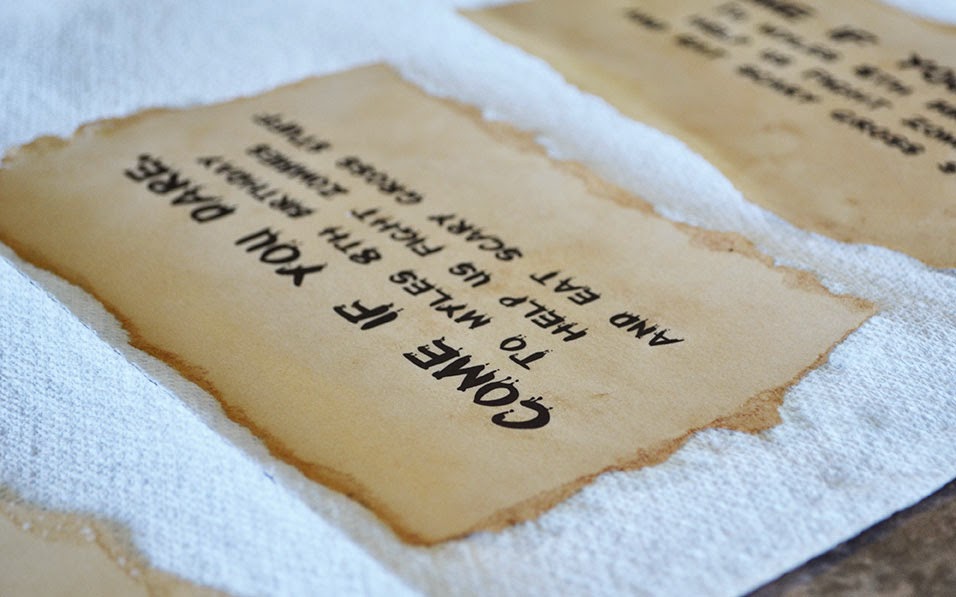 COME IF YOU DARE.
TO MYLES 8TH BIRTHDAY
HELP US FIGHT ZOMBIES
AND EAT SCARY GROSS STUFF
YOU
MYLES 8TH
HELP US FIGHT
AND EAT SCARY GROSS